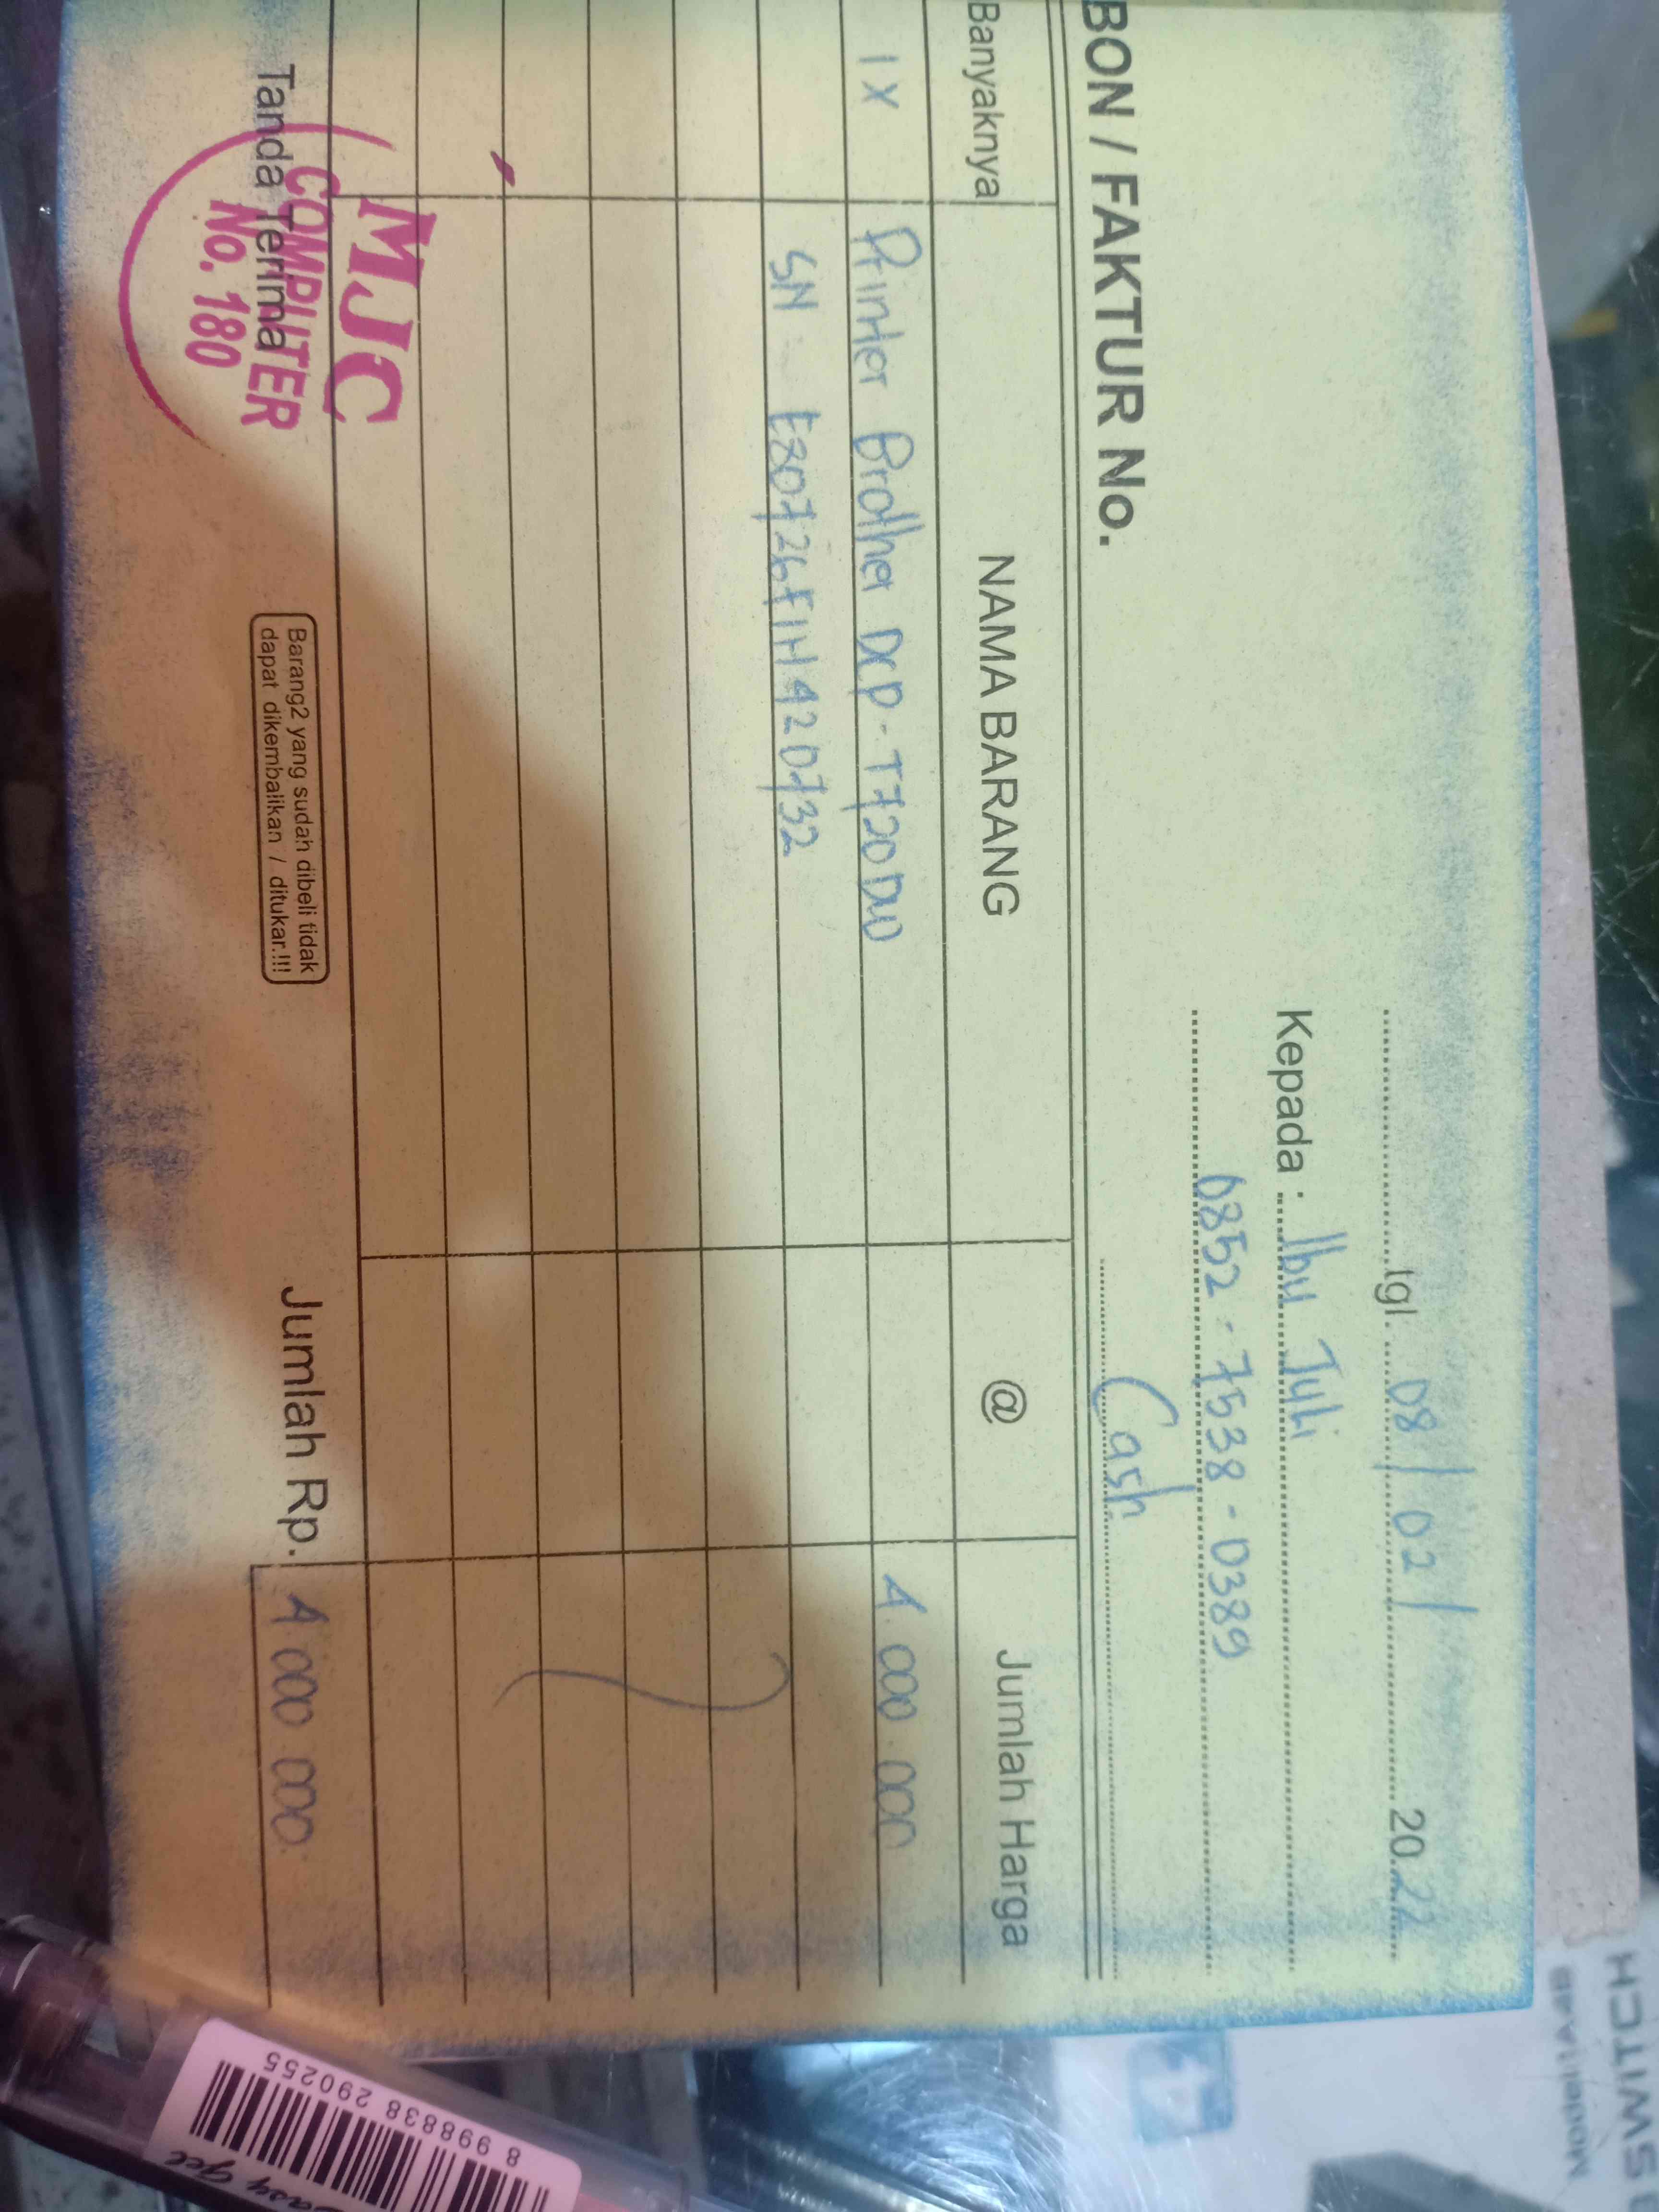 tgl. 08/02/ 2022
Kepada : Ibu Juli
0852-7538-0389
Cash
BON / FAKTUR No.
Banyaknya NAMA BARANG @ Jumlah Harga
1X Printer Brother DCP-T720DW 4 000 000
SN : E80726F1H420732
Jumlah Rp. 4 000 000
Tanda Terima
Barang2 yang sudah dibeli tidak
dapat dikembalikan / ditukar.!!!
MJC
COMPUTER
No. 180
8 998838 290255
SWITCH